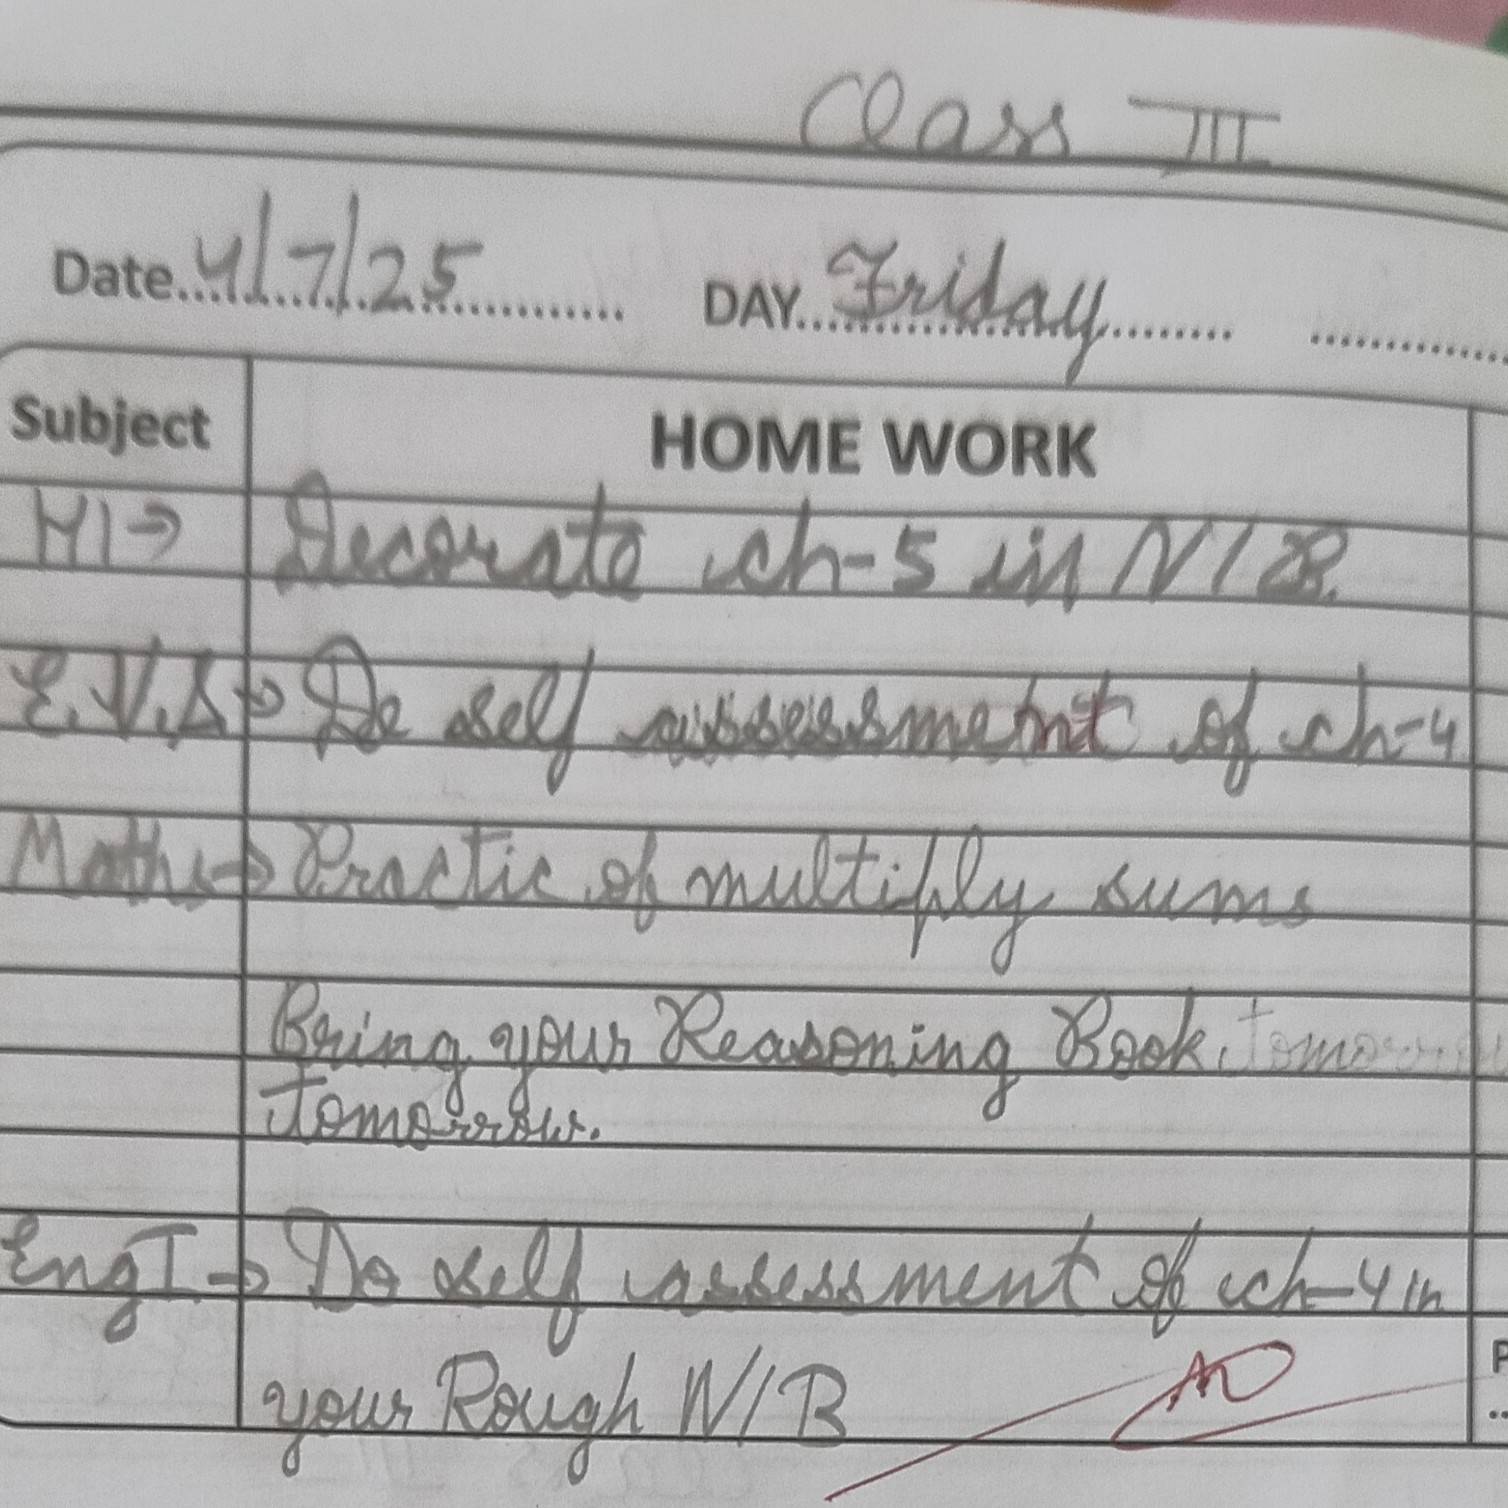 Class III
Date 4/7/25 DAY Friday
Subject HOME WORK
HI → Decorate ch-5 in N/B.
E.V.S → Do self assessment of ch-4
Maths → Practic of multiply sums
Bring your Reasoning Book tomorrow
tomorrow.
Eng I → Do self assessment of ch-4 in
your Rough N/B
P